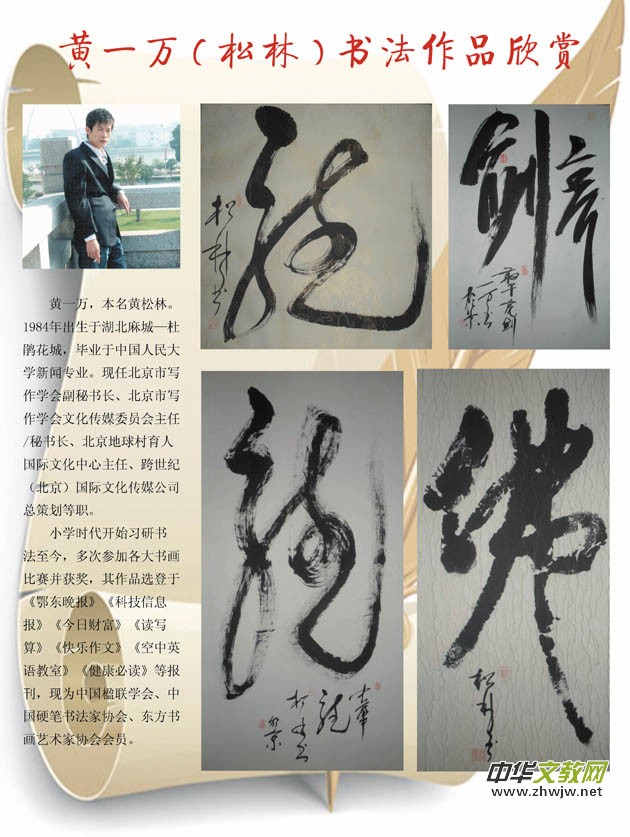 黄一万(松林)书法作品欣赏
黄一万，本名黄松林。
1984年出生于湖北麻城—杜
鹃花城，毕业于中国人民大
学新闻专业。现任北京市写
作学会副秘书长、北京市写
作学会文化传媒委员会主任
/秘书长、北京地球村育人
国际文化中心主任、跨世纪
（北京）国际文化传媒公司
总策划等职。
小学时代开始习研书
法至今，多次参加各大书画
比赛并获奖，其作品选登于
《鄂东晚报》《科技信息
报》《今日财富》《读写
算》《快乐作文》《空中英
语教室》《健康必读》等报
刊，现为中国楹联学会、中
国硬笔书法家协会、东方书
画艺术家协会会员。
龙
松林书
亮剑
敢于亮剑
一万书
龙
中华
龙
松林书
佛
松林书
中华文教网
www.zhwjw.net